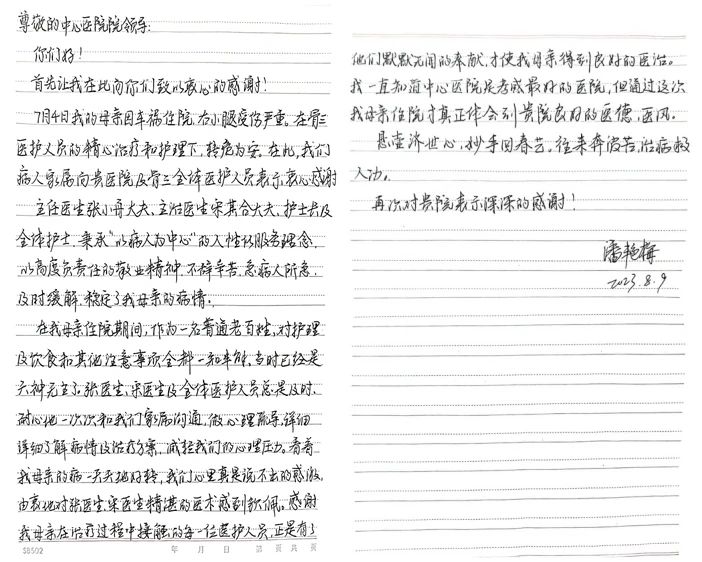 尊敬的中心医院院领导:
你们好!
首先让我在此向你们致以衷心的感谢!
7月4日我的母亲因车祸住院,右小腿受伤严重。在骨三
医护人员的精心治疗和护理下,转危为安。在此,我们
病人家属向贵医院及骨三全体医护人员表示衷心感谢
主任医生张小哥大夫,主治医生宋其合大夫,护士长及
全体护士,秉承"以病人为中心"的人性化服务理念,
以高度负责任的敬业精神,不辞辛苦,急病人所急,
及时缓解,稳定了我母亲的病情。
在我母亲住院期间,作为一名普通老百姓,对护理
及饮食和其他注意事项全都一知半解,当时已经是
六神无主了。张医生,宋医生及全体医护人员总是及时,
耐心地一次次和我们家属沟通,做心理疏导,详细
详细了解病情及治疗方案,减轻我们的心理压力。看着
我母亲的病一天天地好转,我们心里真是说不出的感激,
由衷地对张医生,宋医生精湛的医术感到钦佩。感谢
我母亲在治疗过程中接触的每一位医护人员,正是有了
S8502 年 月 日 第 页 共 页
他们默默无闻的奉献,才使我母亲得到良好的医治。
我一直知道中心医院是孝感最好的医院,但通过这次
我母亲住院才真正体会到贵院良好的医德,医风。
悬壶济世心,妙手回春艺。往来奔波苦,治病救
人功。
再次对贵院表示深深的感谢!
潘艳梅
2023.8.9